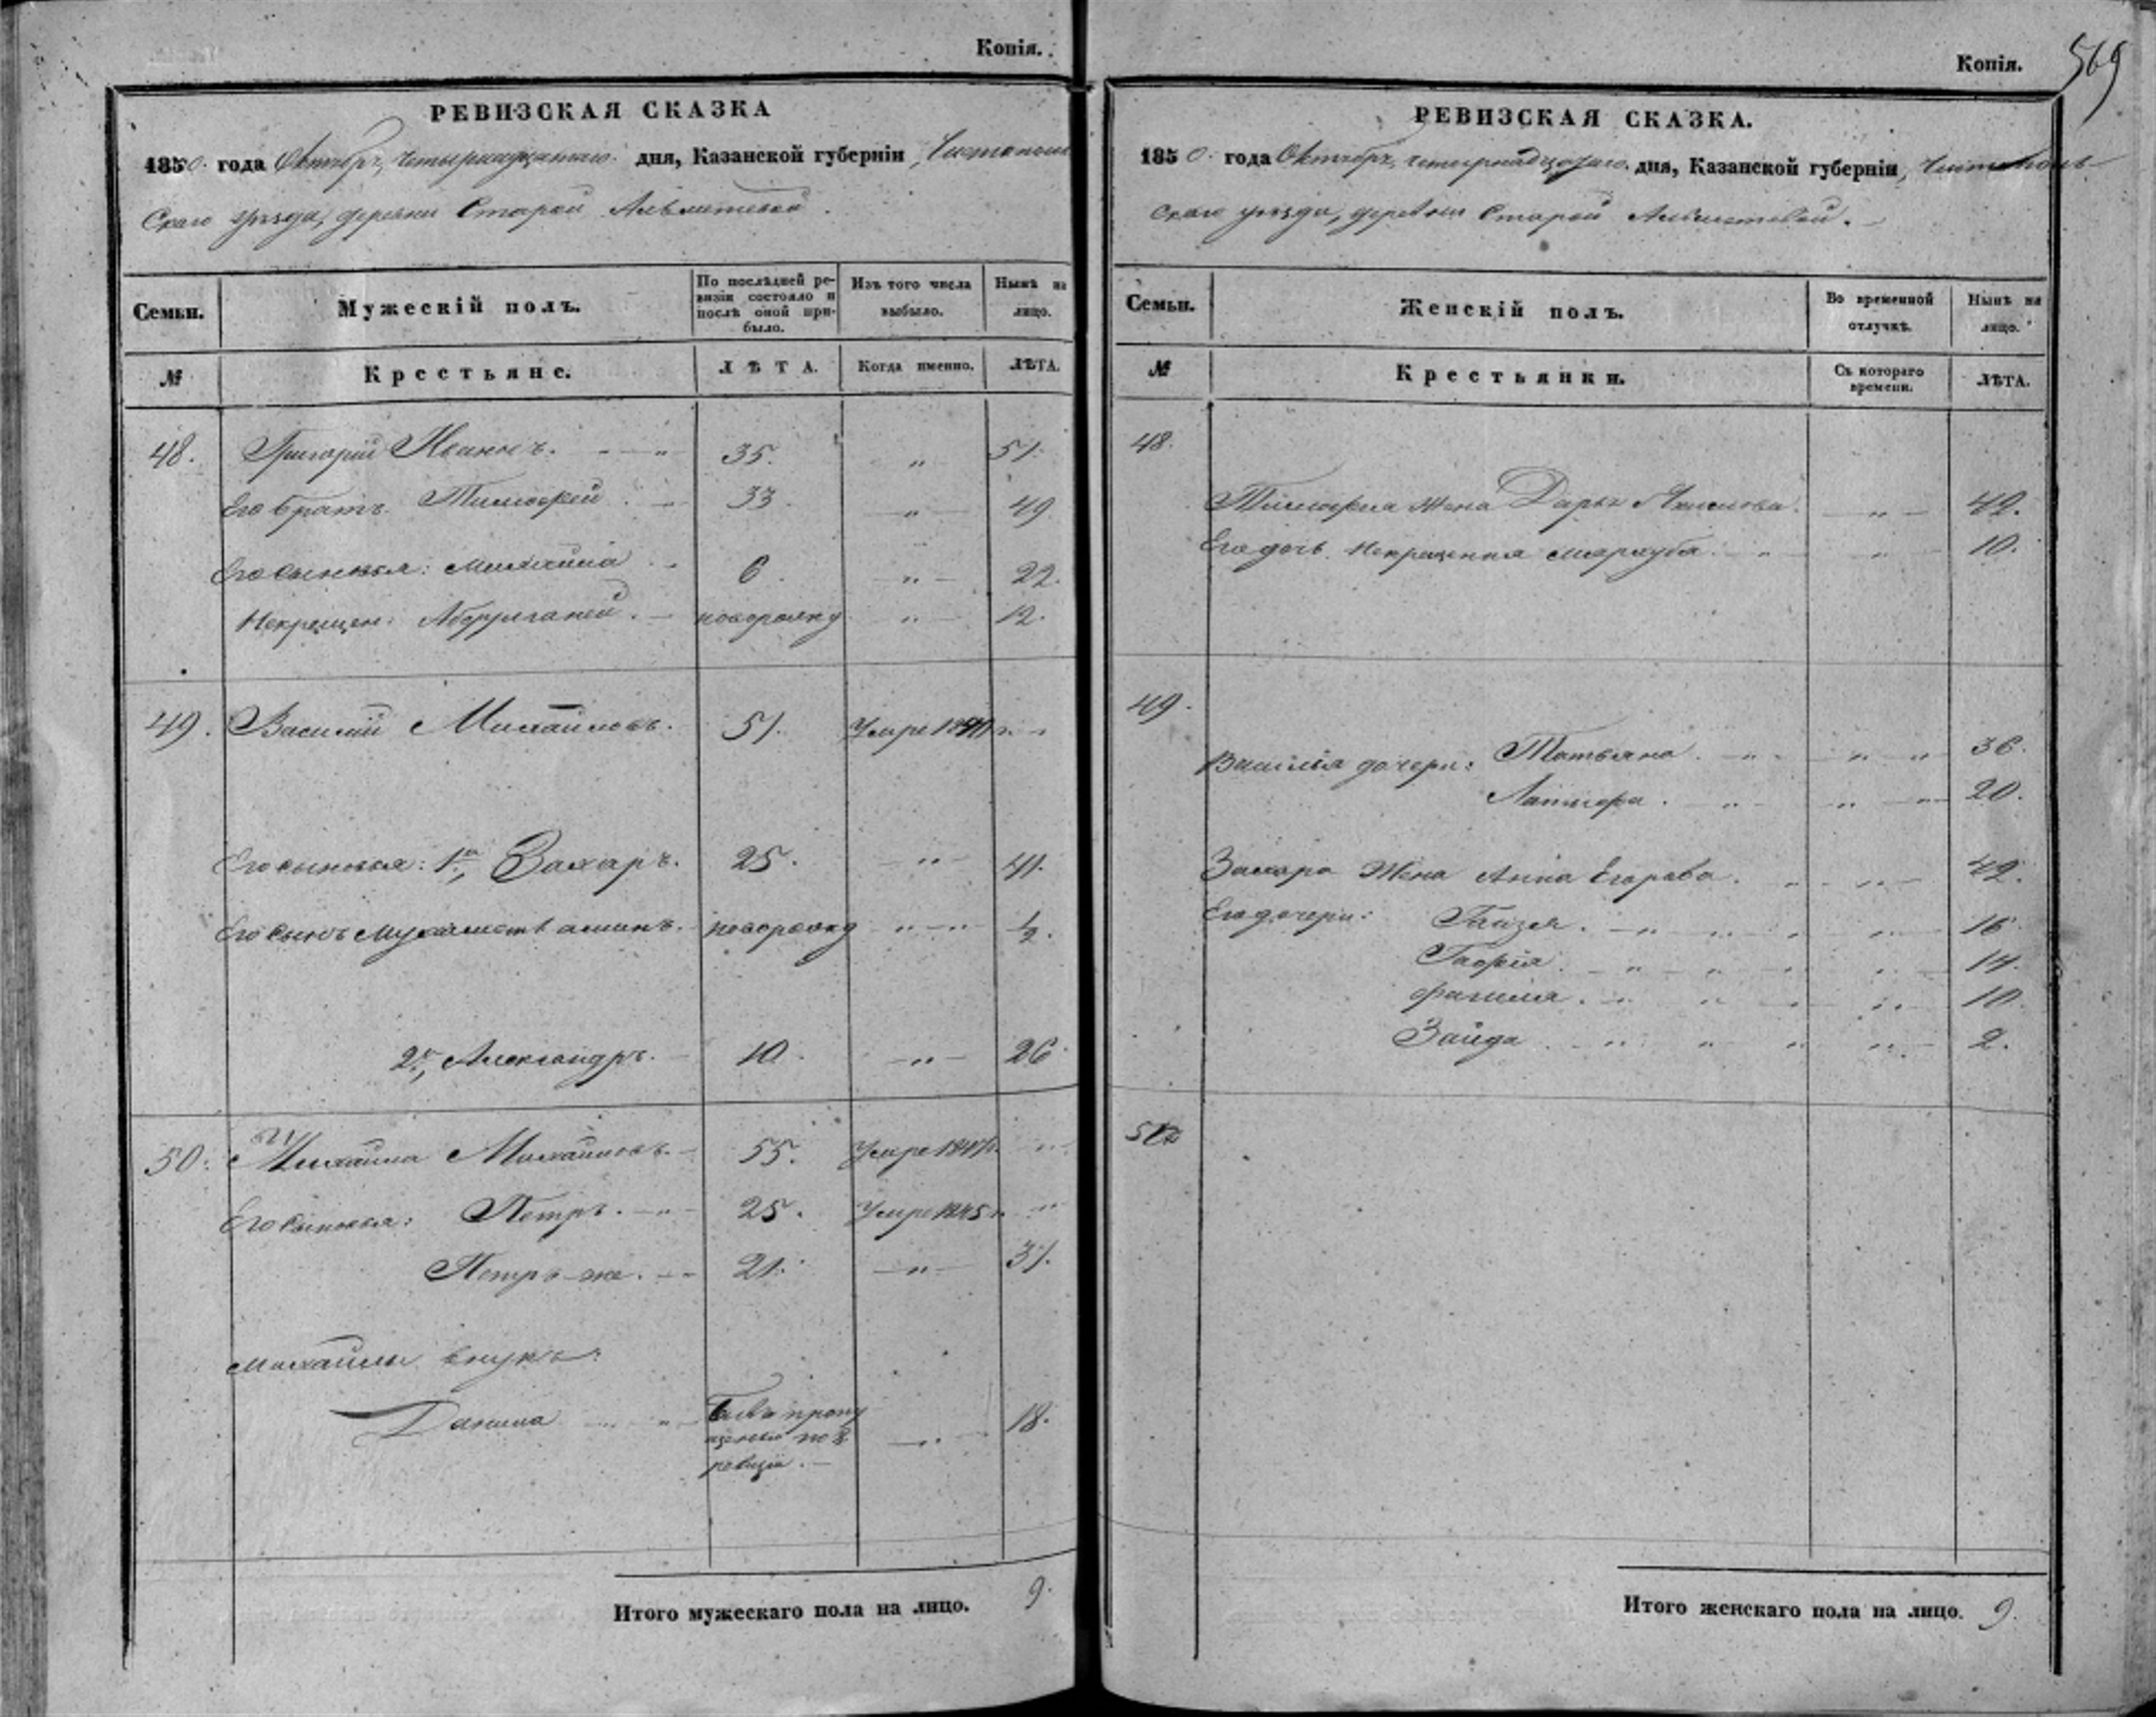 Копія.
РЕВИЗСКАЯ СКАЗКА
1850. года Октября, четырнадцатаго дня, Казанской губерніи, Чистополь
Скаго уѣзда, деревни Старой Альметевой.
Семьи.
Мужескій полъ.
По послѣдней ре-
визіи состояло и
послѣ оной при-
было.
Изъ того числа
выбыло.
Нынѣ на
лицо.
№
Крестьяне.
ЛѢТА.
Когда именно.
ЛѢТА.
48. Григорій Ивановъ. 35. " 51.
Его братъ Тимофей 33. " 49
Его сыновья: Михайла 6. " 22.
Некрещен: Абдулганей. новорожд " 12.
49. Василій Михайловъ. 51. Умре 18 г. "
Его сыновья: 1й, Захаръ. 25. " 41.
Его сынъ Мухаметъ аминъ. новорожд " ½.
2й, Александръ. 10. " 26
50. Михайла Михайловъ. 55. Умре г. "
Его сыновья: Петръ. 25. Умре 1845 г. "
Петръ-же. 21. " 37.
Михайлы внукъ:
Данила Бывъ пропу
щеннъ по 8
ревизіи. " 18.
Итого мужескаго пола на лицо. 9.
Копія. 569
РЕВИЗСКАЯ СКАЗКА.
1850. года Октября, четырнадцатаго. дня, Казанской губерніи, Чистополь
Скаго уѣзда, деревни Старой Альметевой.
Семьи.
Женскій полъ.
Во временной
отлучкѣ.
Нынѣ на
лицо.
№
Крестьянки.
Съ котораго
времени.
ЛѢТА.
48.
Тимофея жена Дарья Якимова. " 42.
Его дочь некрещенная " 10.
49.
Василья дочери: Татьяна. " 36.
" 20.
Захара Жена Анна Егорова. " 42.
Его дочери: Гайзя. " 16
" 14.
" 10.
Зайда " 2.
50
Итого женскаго пола на лицо. 9.